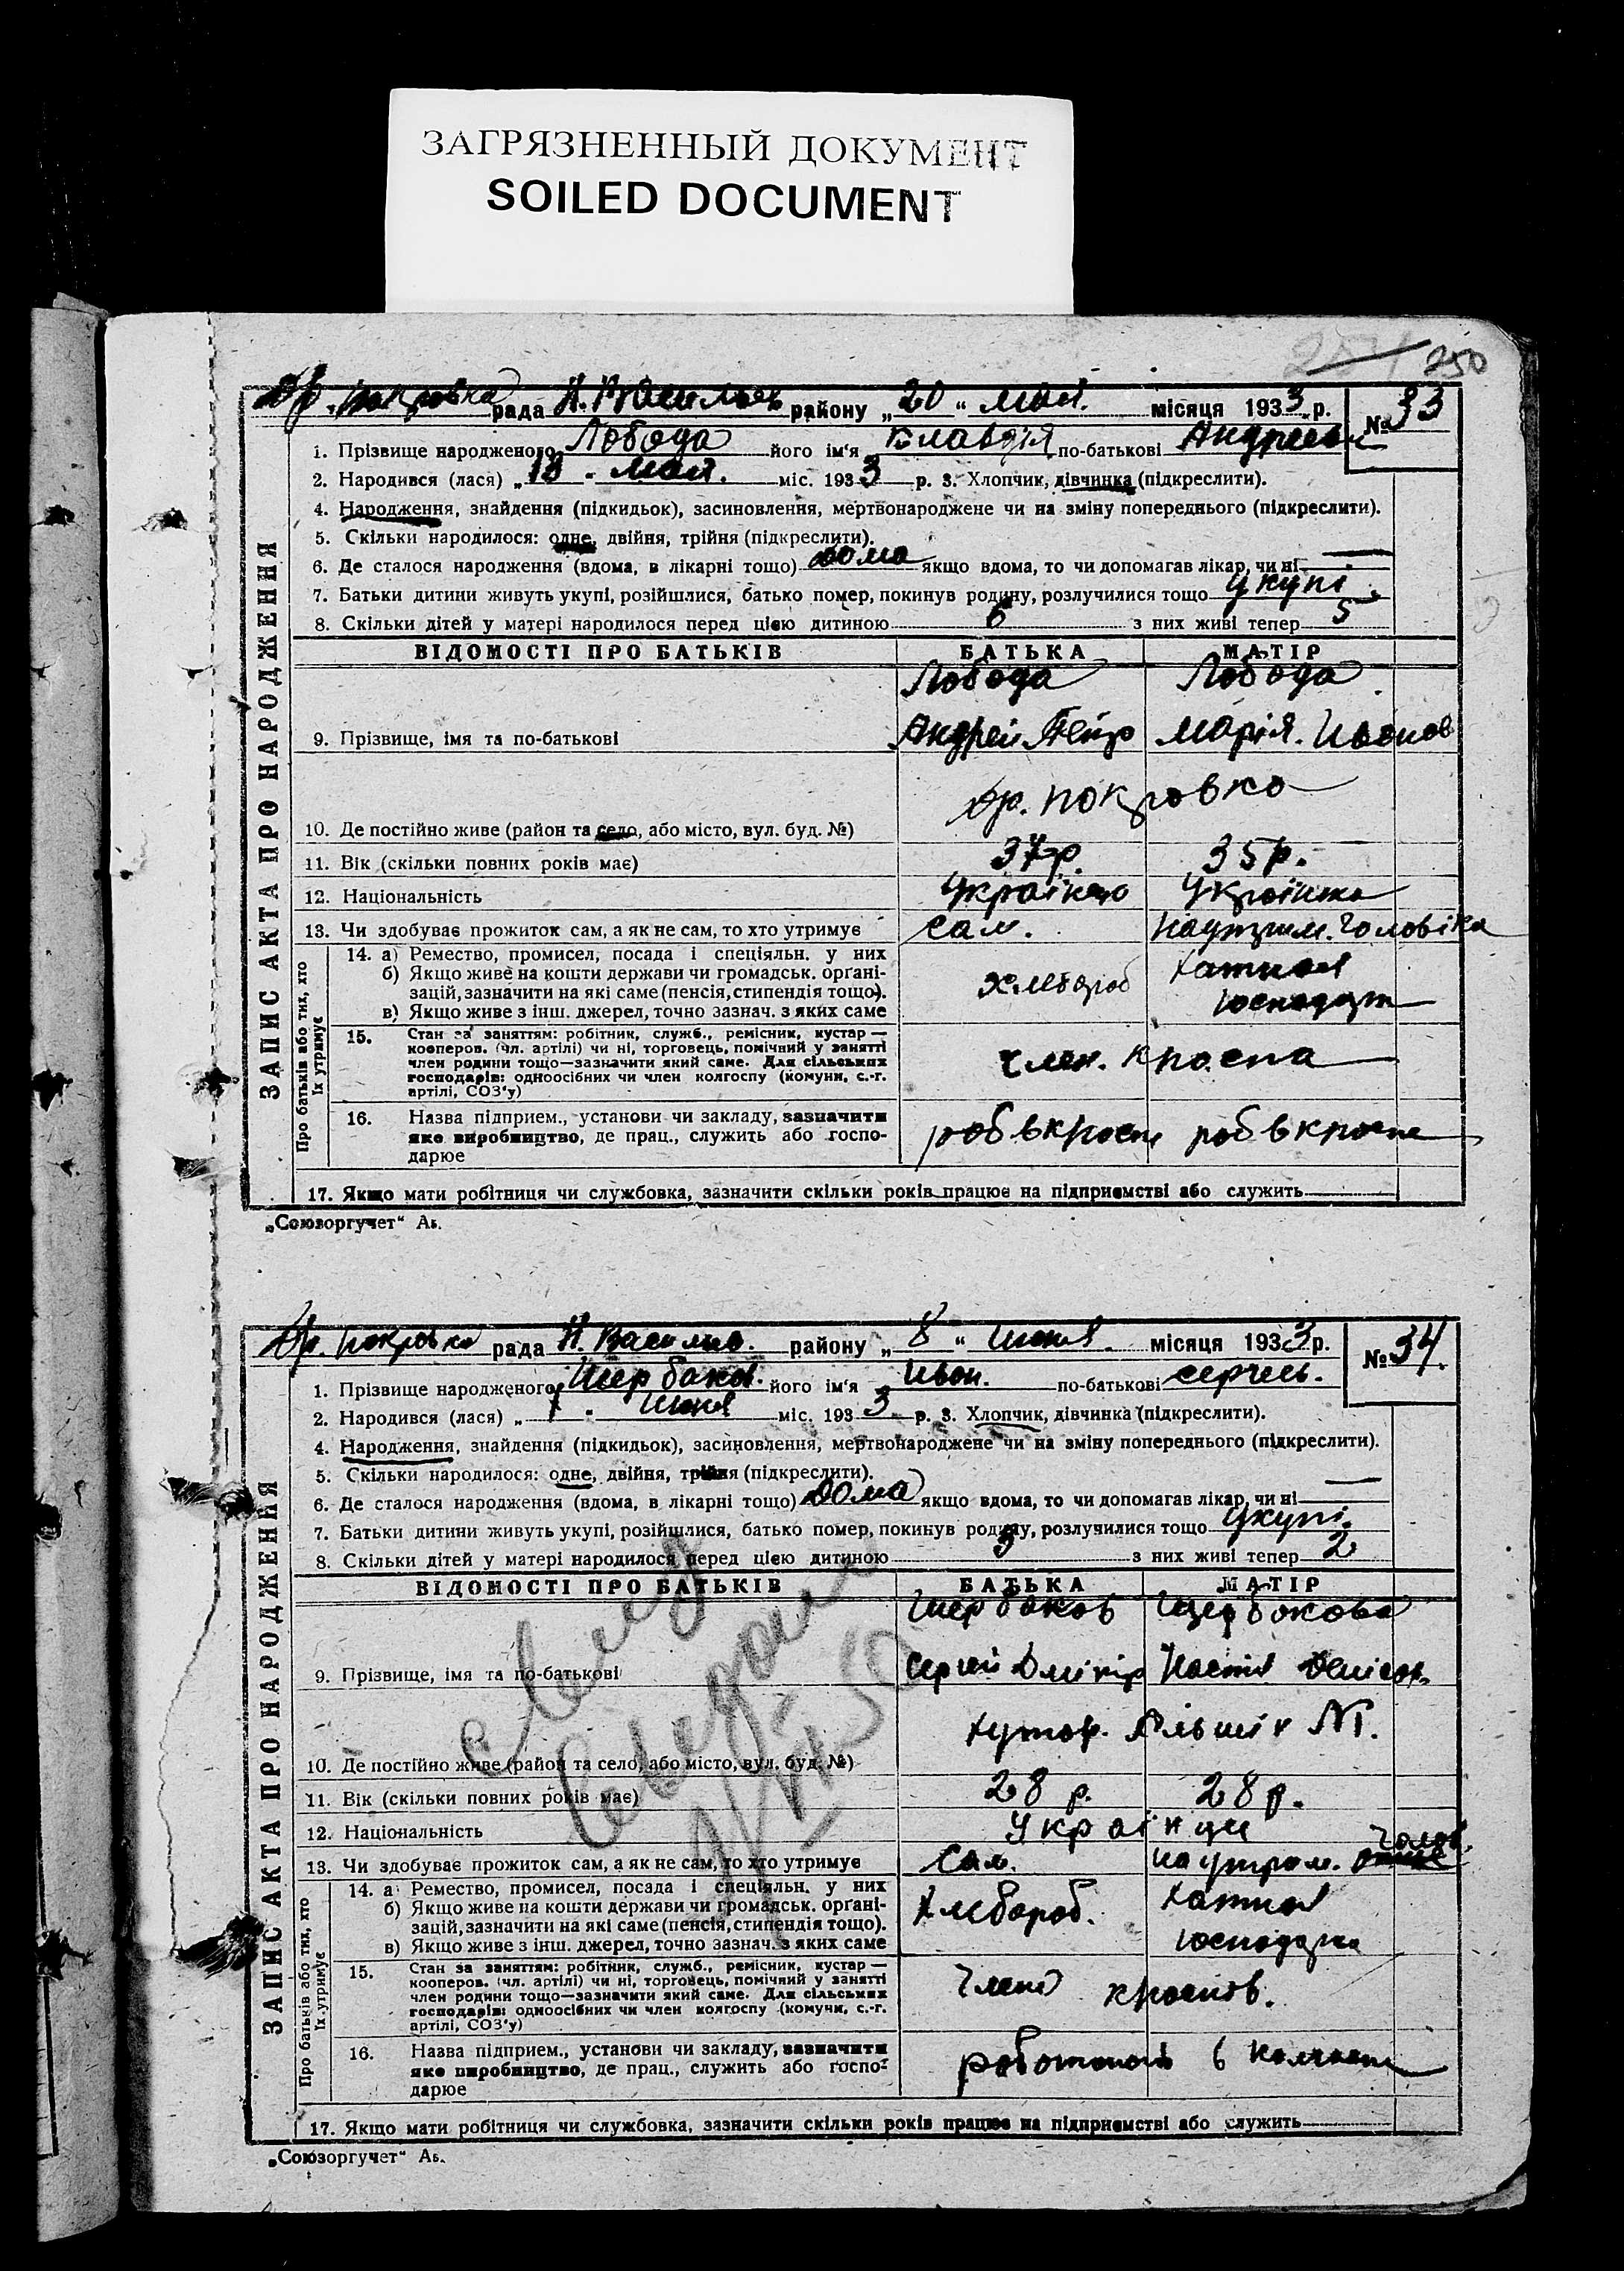 ЗАГРЯЗНЕННЫЙ ДОКУМЕНТ
SOILED DOCUMENT
250
покровка рада Н. Васильев району „20“ мая. місяця 1933 р. № 33
ЗАПИС АКТА ПРО НАРОДЖЕННЯ
1. Прізвище народженого Лобода його ім'я Клавдія по-батькові Андреев
2. Народився (лася) „13 . мая. міс. 1933 р. 3. Хлопчик, дівчинка (підкреслити).
4. Народження, знайдення (підкидьок), засиновлення, мертвонароджене чи на зміну попереднього (підкреслити).
5. Скільки народилося: одне, двійня, трійня (підкреслити).
6. Де сталося народження (вдома, в лікарні тощо) дома якщо вдома, то чи допомагав лікар, чи ні —
7. Батьки дитини живуть укупі, розійшлися, батько помер, покинув родину, розлучилися тощо укупі.
8. Скільки дітей у матері народилося перед цією дитиною 6 з них живі тепер 5
ВІДОМОСТІ ПРО БАТЬКІВ БАТЬКА МАТІР
Лобода Лобода
9. Прізвище, імя та по-батькові Андрей Петро Марія. Иванов
др. покровка
10. Де постійно живе (район та село, або місто, вул. буд. №)
11. Вік (скільки повних років має) 37р. 35р.
12. Національність Українец Українка
13. Чи здобуває прожиток сам, а як не сам, то хто утримує Сам. На утрим. Чоловіка
Про батьків або тих, хто їх утримує
14. а) Ремество, промисел, посада і спеціяльн. у них
б) Якщо живе на кошти держави чи громадськ. орґані-
зацій, зазначити на які саме (пенсія, стипендія тощо).
в) Якщо живе з інш. джерел, точно зазнач. з яких саме
Хлебороб Хатная
15. Стан за заняттям: робітник, служб., ремісник, кустар —
кооперов. (чл. артілі) чи ні, торговець, помічний у занятті
член родини тощо—зазначити який саме. Для сільських
господарів: одноосібних чи член колгоспу (комуни, с.-г.
артілі, СОЗ'у)
член.
16. Назва підприєм., установи чи закладу, зазначити
яке виробництво, де прац., служить або госпо-
дарюе
17. Якщо мати робітниця чи службовка, зазначити скільки років працює на підприємстві або служить
„Союзоргучет“ Аь.
др. покровка рада Н. Василье. району „8“ июня. місяця 1933 р. № 34.
ЗАПИС АКТА ПРО НАРОДЖЕННЯ
1. Прізвище народженого Щербаков. його ім'я Иван. по-батькові Сергеев.
2. Народився (лася) „1 . июня міс. 1933 р. 3. Хлопчик, дівчинка (підкреслити).
4. Народження, знайдення (підкидьок), засиновлення, мертвонароджене чи на зміну попереднього (підкреслити).
5. Скільки народилося: одне, двійня, трійня (підкреслити).
6. Де сталося народження (вдома, в лікарні тощо) дома якщо вдома, то чи допомагав лікар, чи ні —
7. Батьки дитини живуть укупі, розійшлися, батько помер, покинув родину, розлучилися тощо укупі.
8. Скільки дітей у матері народилося перед цією дитиною 3 з них живі тепер 2
ВІДОМОСТІ ПРО БАТЬКІВ БАТЬКА МАТІР
Щербаков Щербакова
9. Прізвище, імя та по-батькові Сергей Дмітр Настія Денісов.
хутор. №1.
10. Де постійно живе (район та село, або місто, вул. буд. №)
11. Вік (скільки повних років має) 28 р. 28 р.
12. Національність Українци
13. Чи здобуває прожиток сам, а як не сам, то хто утримує Сам. на утрим. Чолов.
Про батьків або тих, хто їх утримує
14. а) Ремество, промисел, посада і спеціяльн. у них
б) Якщо живе на кошти держави чи громадськ. орґані-
зацій, зазначити на які саме (пенсія, стипендія тощо).
в) Якщо живе з інш. джерел, точно зазнач. з яких саме
Хлебороб. Хатная
15. Стан за заняттям: робітник, служб., ремісник, кустар —
кооперов. (чл. артілі) чи ні, торговець, помічний у занятті
член родини тощо—зазначити який саме. Для сільських
господарів: одноосібних чи член колгоспу (комуни, с.-г.
артілі, СОЗ'у)
16. Назва підприєм., установи чи закладу, зазначити
яке виробництво, де прац., служить або госпо-
дарюе
17. Якщо мати робітниця чи службовка, зазначити скільки років працює на підприємстві або служить
„Союзоргучет“ Аь.